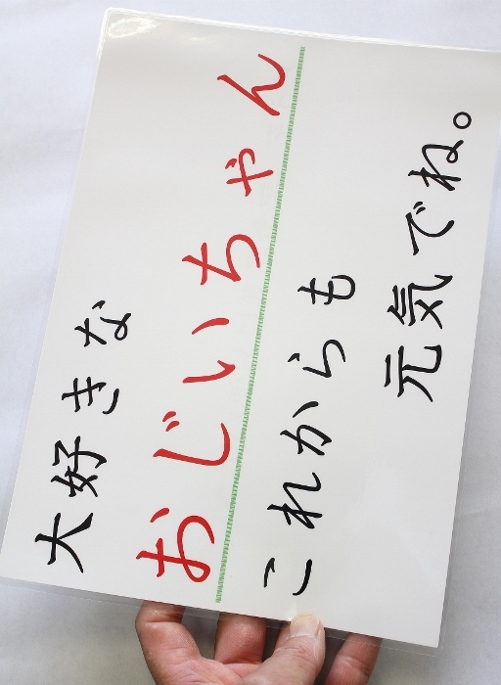 大好きな
おじいちゃん
これからも
元気でね。